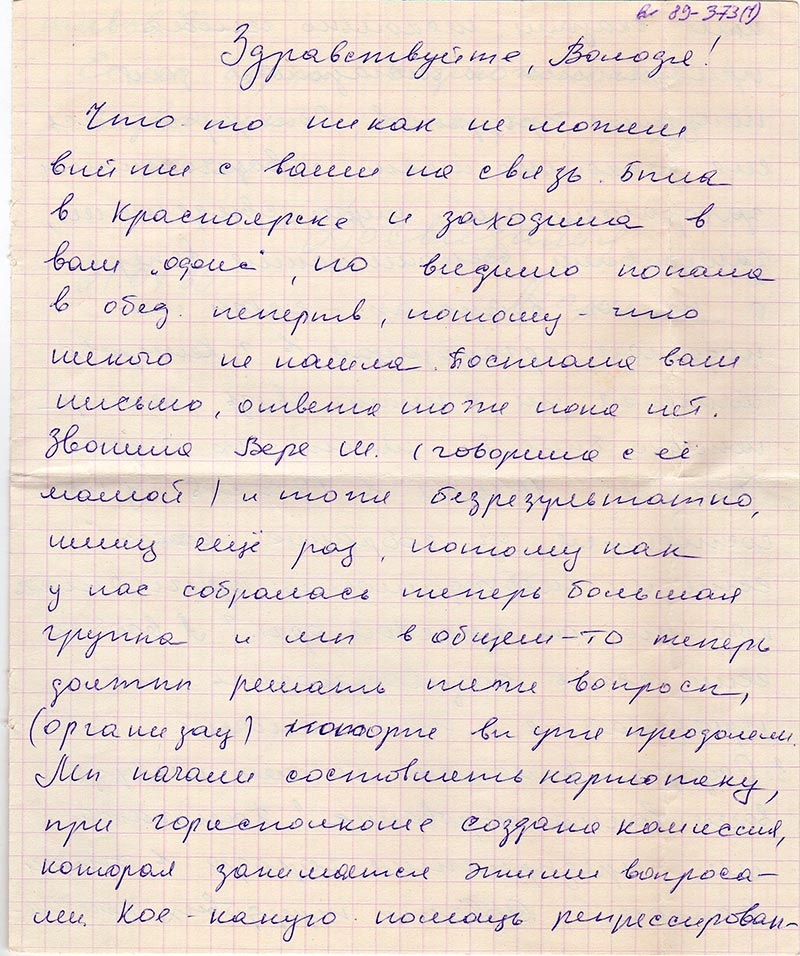 вл 89-373(1)
Здравствуйте, Володя!
Что-то никак не можем
выйти с вами на связь. Была
в Красноярске и заходила в
ваш „офис“, но видимо попала
в обед. перерыв, потому-что
никого не нашла. Послала вам
письмо, ответа тоже пока нет.
Звонила Вере Ш. (говорила с её
мамой) и тоже безрезультатно,
пишу ещё раз, потому как
у нас собралась теперь большая
группа и мы в общем-то теперь
должны решать те же вопросы,
(организац) которые вы уже преодолели.
Мы начали составлять картотеку,
при горисполкоме создана комиссия,
которая занимается этими вопроса-
ми. Кое-какую помощь репрессирован-